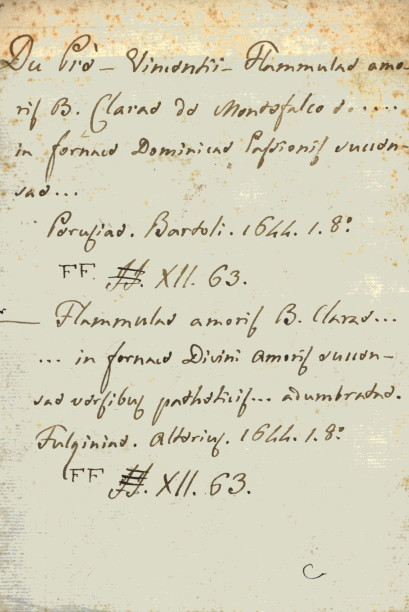 Du Pré – Vincentii – Flammulae amo-
ris B. Clarae de Montefalco e.....
in fornace Dominicae Passionis succen-
sae...
Perusiae. Bartoli. 1644. 1. 8º
FF. XII. 63.
— Flammulae amoris B. Clarae...
... in fornace Divini Amoris succen-
sae versibus patheticis... adumbratae.
Fulginiae. Alterius. 1644. 1. 8º
FF. XII. 63.
C